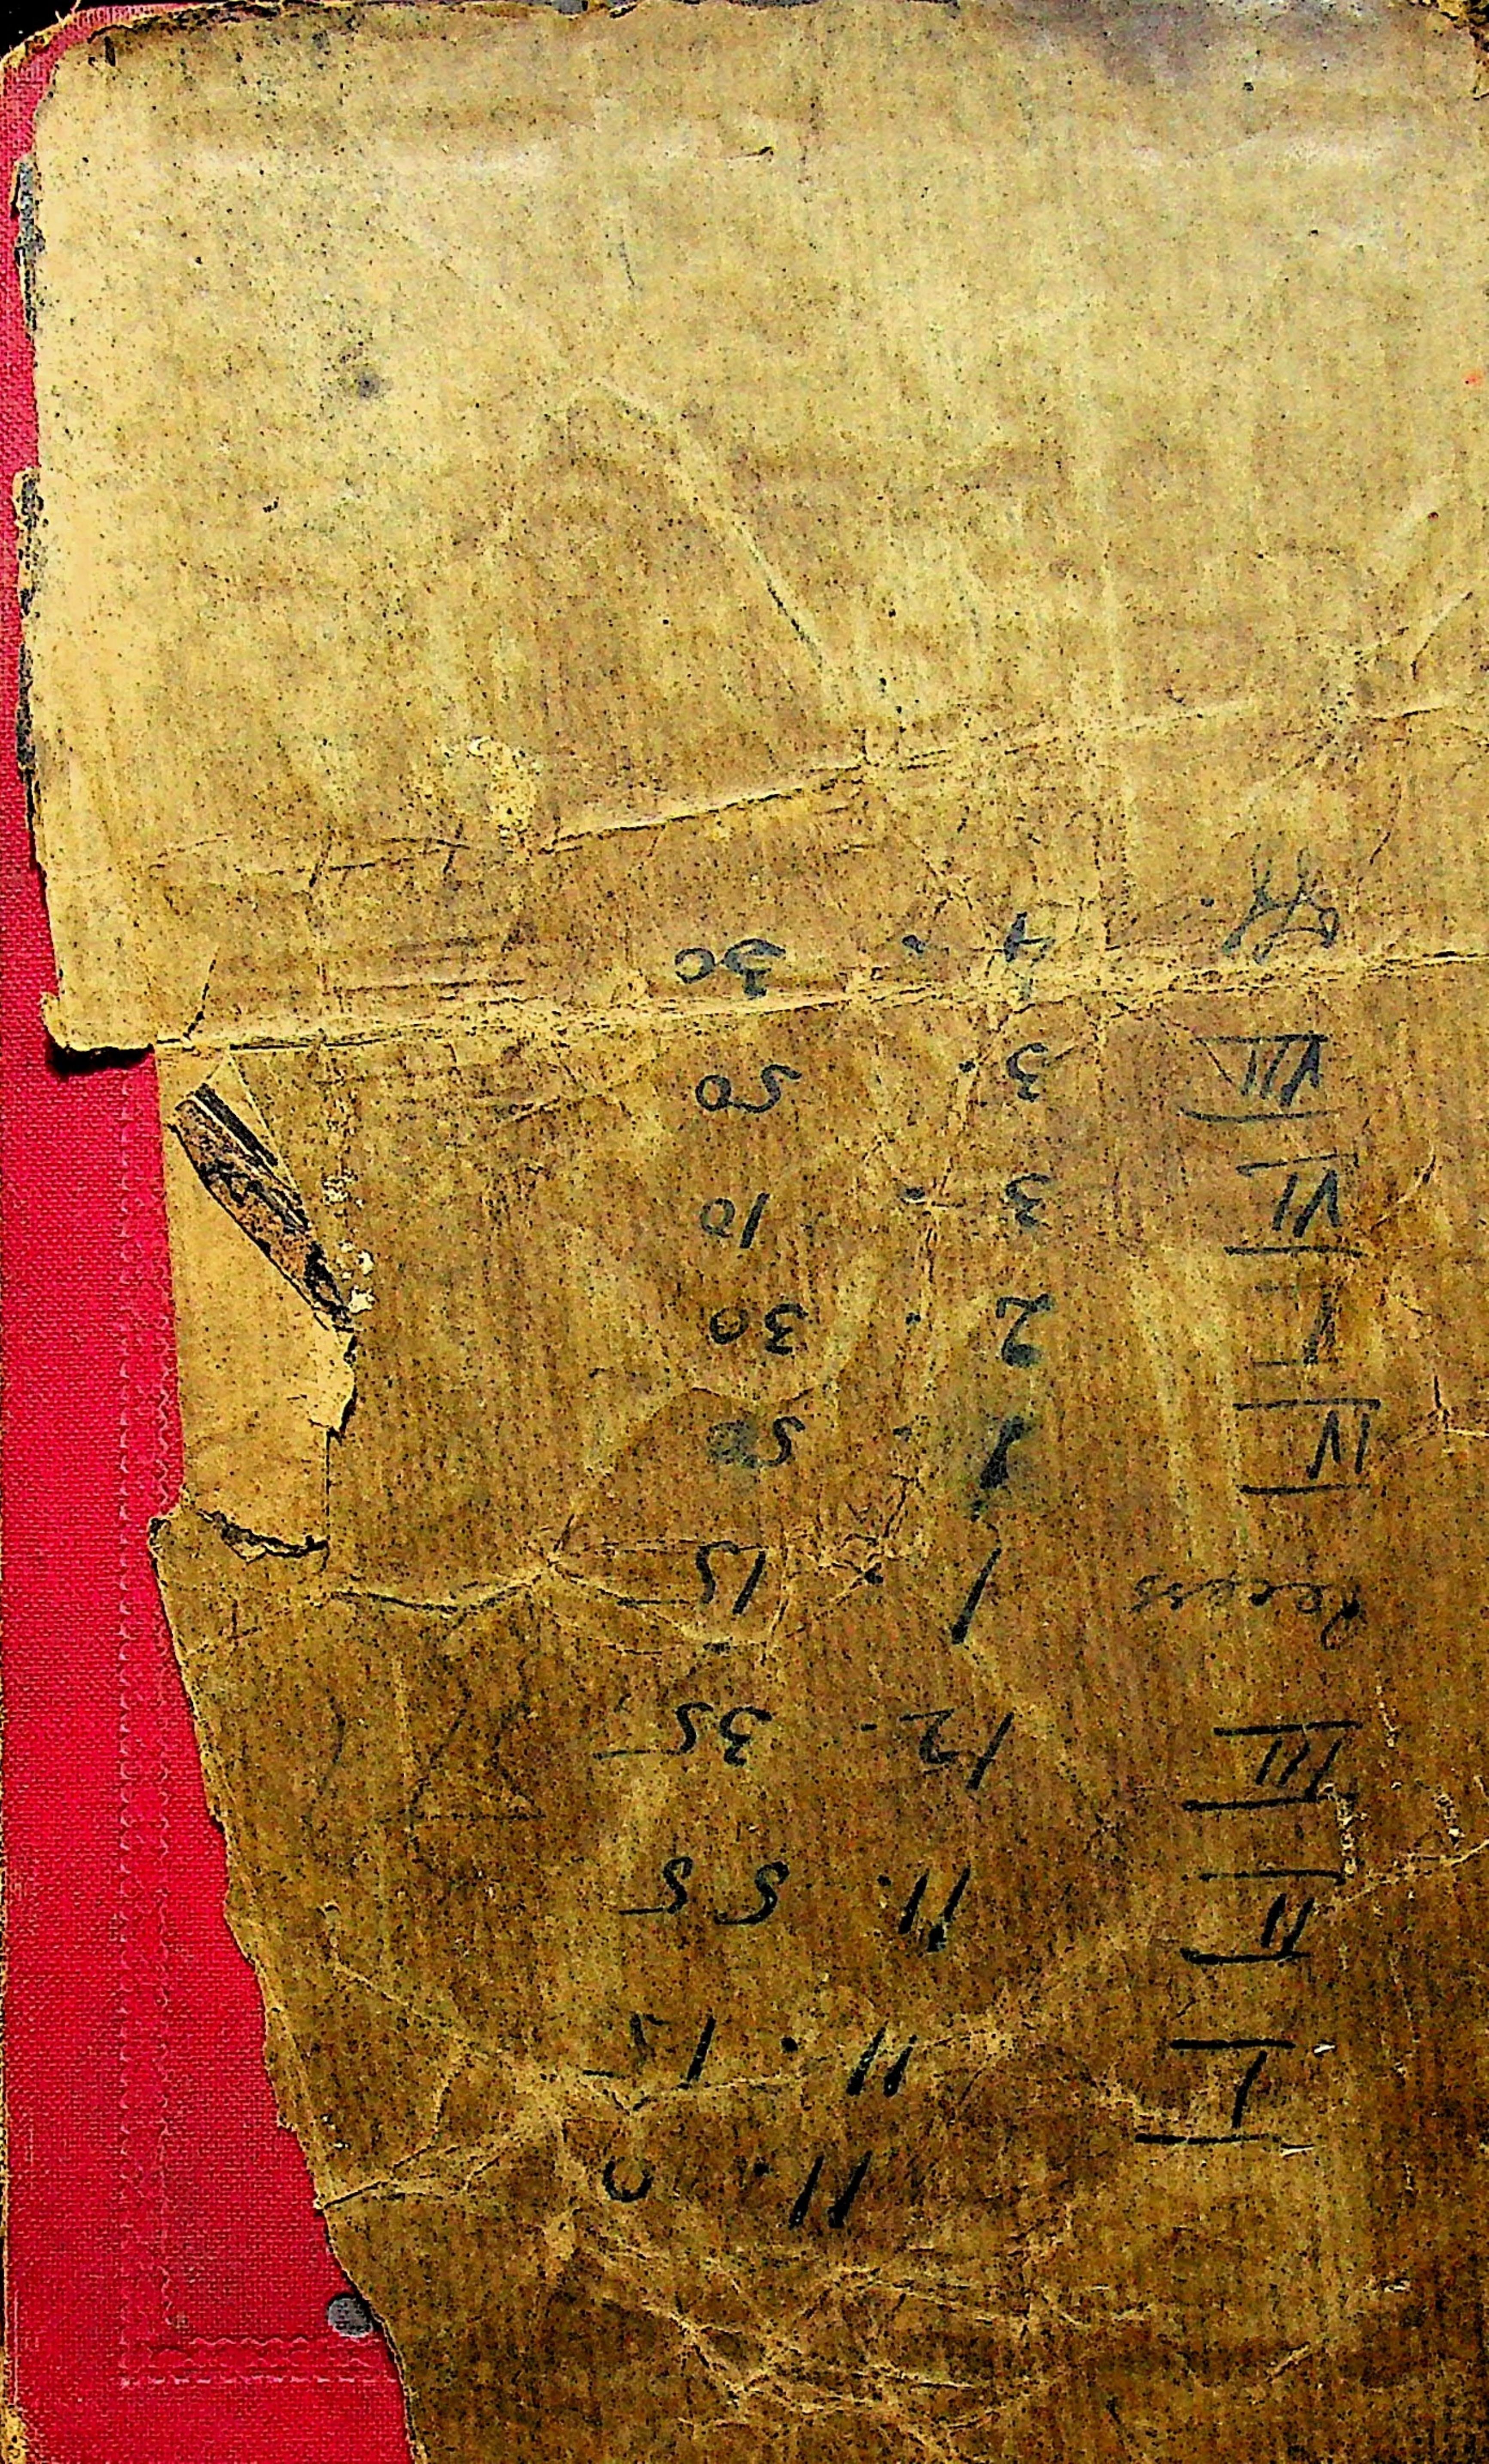 11.0
I 11.15
II 11.55
III 12.35
Recess 1.15
IV 1.50
V 2.30
VI 3.10
VII 3.50
4.30